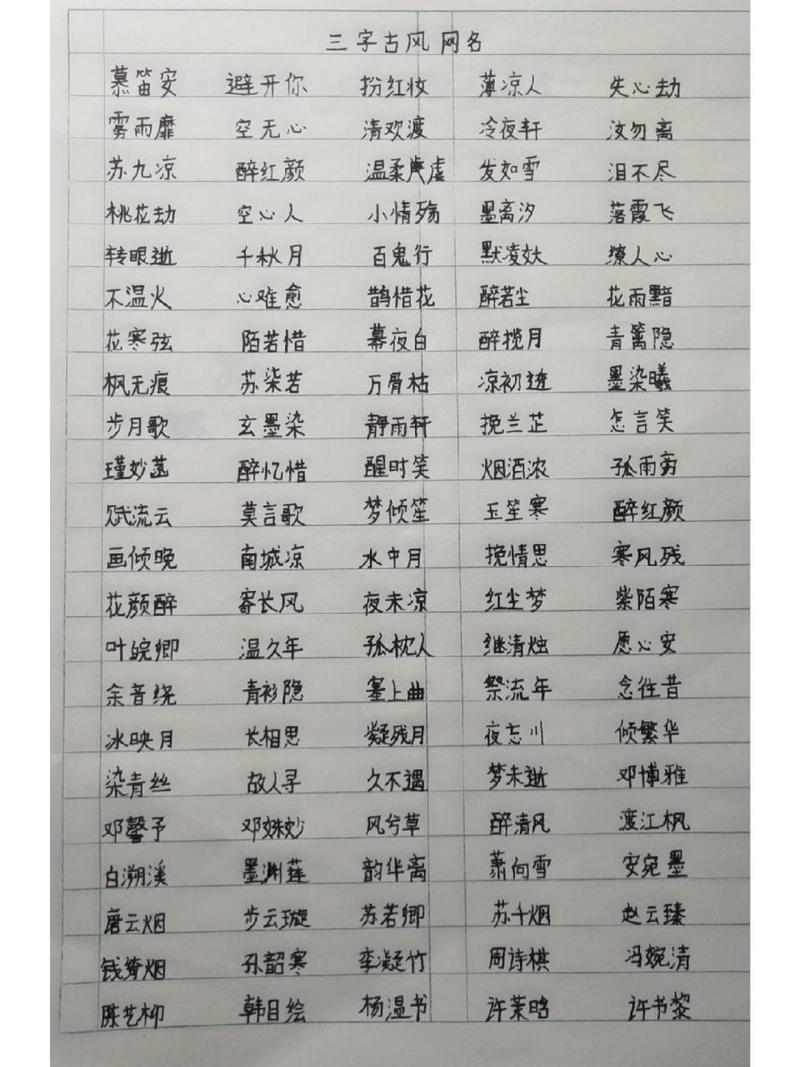 三字古风网名
慕笛安 避开你 扮红妆 薄凉人 失心劫
雾雨靡 空无心 清欢渡 冷夜轩 汝勿离
苏九凉 醉红颜 温柔 发如雪 泪不尽
桃花劫 空心人 小情殇 墨离汐 落霞飞
转眼逝 千秋月 百鬼行 默凌妖 撩人心
不温火 心难愈 鹊惜花 醉若尘 花雨黯
花寒弦 陌若惜 幕夜白 醉揽月 青篱隐
枫无痕 苏柒若 万骨枯 凉初透 墨染曦
步月歌 玄墨染 静雨轩 挽兰芷 怎言笑
瑾妙菡 醉忆惜 醒时笑 烟酒浓 孤雨
赋流云 莫言歌 梦倾笙 玉笙寒 醉红颜
画倾晚 南城凉 水中月 挽情思 寒风残
花颜醉 寄长风 夜未凉 红尘梦 紫陌寒
叶皖卿 温久年 孤枕人 继清烛 愿心安
余音绕 青衫隐 塞上曲 祭流年 念往昔
冰映月 长相思 凝残月 夜忘川 倾繁华
染青丝 故人寻 久不遇 梦未逝 邓博雅
邓馨予 邓姝妙 风兮草 醉清风 渡江枫
白溯溪 墨渊莲 韵华离 萧向雪 安宛墨
唐云烟 步云璇 苏若卿 苏千烟 赵云臻
钱绮烟 孙韶寒 李凝竹 周诗棋 冯婉清
陈艺柳 韩目绘 杨温书 许茉晗 许书黎